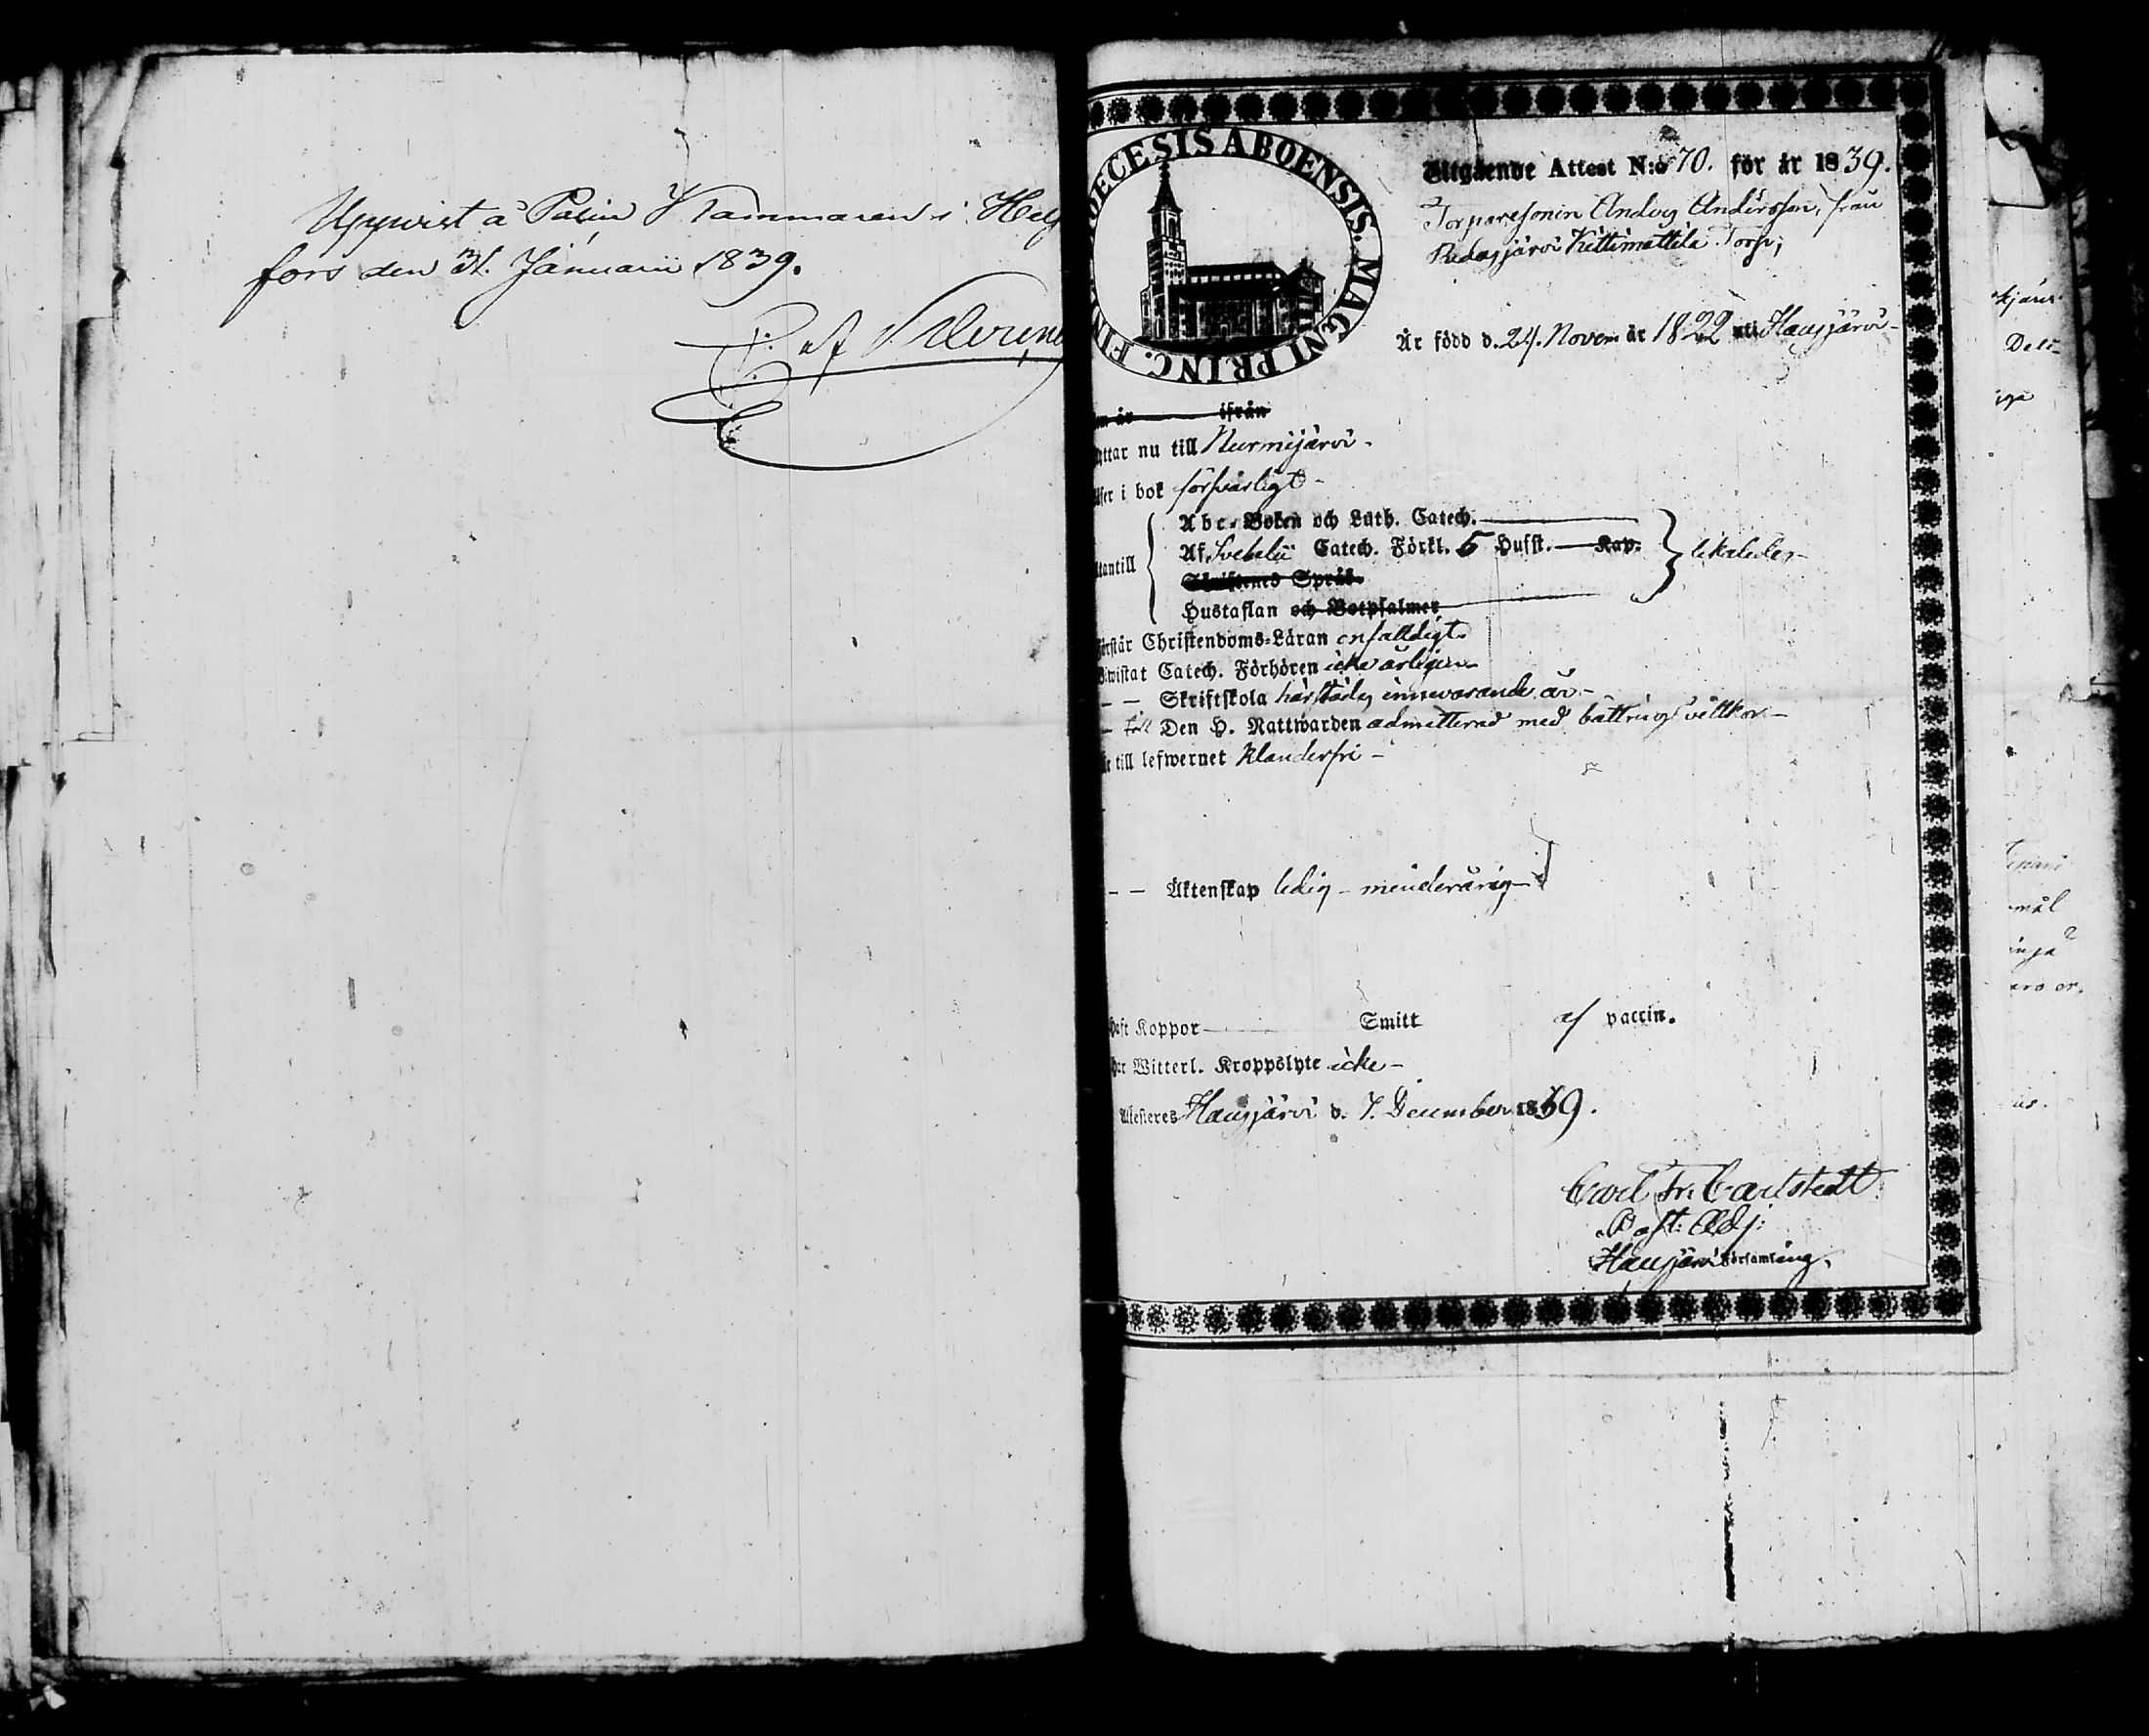 Uppvist å Polis Kammaren i Helg
fors den 31. Januarii 1839.
af
DIOECESIS ABOENSIS. MAGNI PRINC. FIN
Utgående Attest N:o 70. för år 1839.
Torparesonen Anders Andersson, från
Kittimattila Torp,
Är född d. 24. Novem år 1822 uti Hausjärvi
m år ifrån
yttar nu till Nurmijärvi.
äser i bok försvarligt
Abc-Boken och Luth. Catech.
Af Svebelii Catech. Förkl. 5 Hufst. Kap.
tantill likaledes
Skriftenes Språk.
Hustaflan och Botpsalmer
örstår Christendoms-Läran enfalldigt.
Biwistat Catech. Förhören icke årligen
— — Skriftskola härstädes innevarande år
— till Den H. Nattwarden admitterad med bättrings vilkor
är till lefwernet klanderfri
— — Äktenskap ledig - minderårig
Haft Koppor Smitt af vaccin.
Har Witterl. Kroppslyte icke
Attesteres Hausjärvi d. 7. December 1839.
Carl Fr. Carlstedt
Past. Adj:
Hausjärvi Församling.
Dels
iga
mål